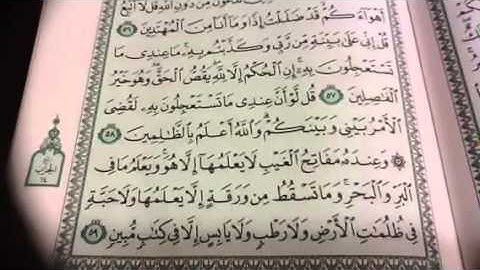 أَهْوَآءَكُمْ قَدْ ضَلَلْتُ إِذًا وَمَآ أَنَا۠ مِنَ ٱلْمُهْتَدِينَ ٥٦
قُلْ إِنِّى عَلَىٰ بَيِّنَةٍ مِّن رَّبِّى وَكَذَّبْتُم بِهِۦ مَا عِندِى مَا
تَسْتَعْجِلُونَ بِهِۦٓ إِنِ ٱلْحُكْمُ إِلَّا لِلَّهِ يَقُصُّ ٱلْحَقَّ وَهُوَ خَيْرُ
ٱلْفَٰصِلِينَ ٥٧ قُل لَّوْ أَنَّ عِندِى مَا تَسْتَعْجِلُونَ بِهِۦ لَقُضِىَ
ٱلْأَمْرُ بَيْنِى وَبَيْنَكُمْ وَٱللَّهُ أَعْلَمُ بِٱلظَّٰلِمِينَ ٥٨
۞ وَعِندَهُۥ مَفَاتِحُ ٱلْغَيْبِ لَا يَعْلَمُهَآ إِلَّا هُوَ وَيَعْلَمُ مَا فِى
ٱلْبَرِّ وَٱلْبَحْرِ وَمَا تَسْقُطُ مِن وَرَقَةٍ إِلَّا يَعْلَمُهَا وَلَا حَبَّةٍ
فِى ظُلُمَٰتِ ٱلْأَرْضِ وَلَا رَطْبٍ وَلَا يَابِسٍ إِلَّا فِى كِتَٰبٍ مُّبِينٍ ٥٩